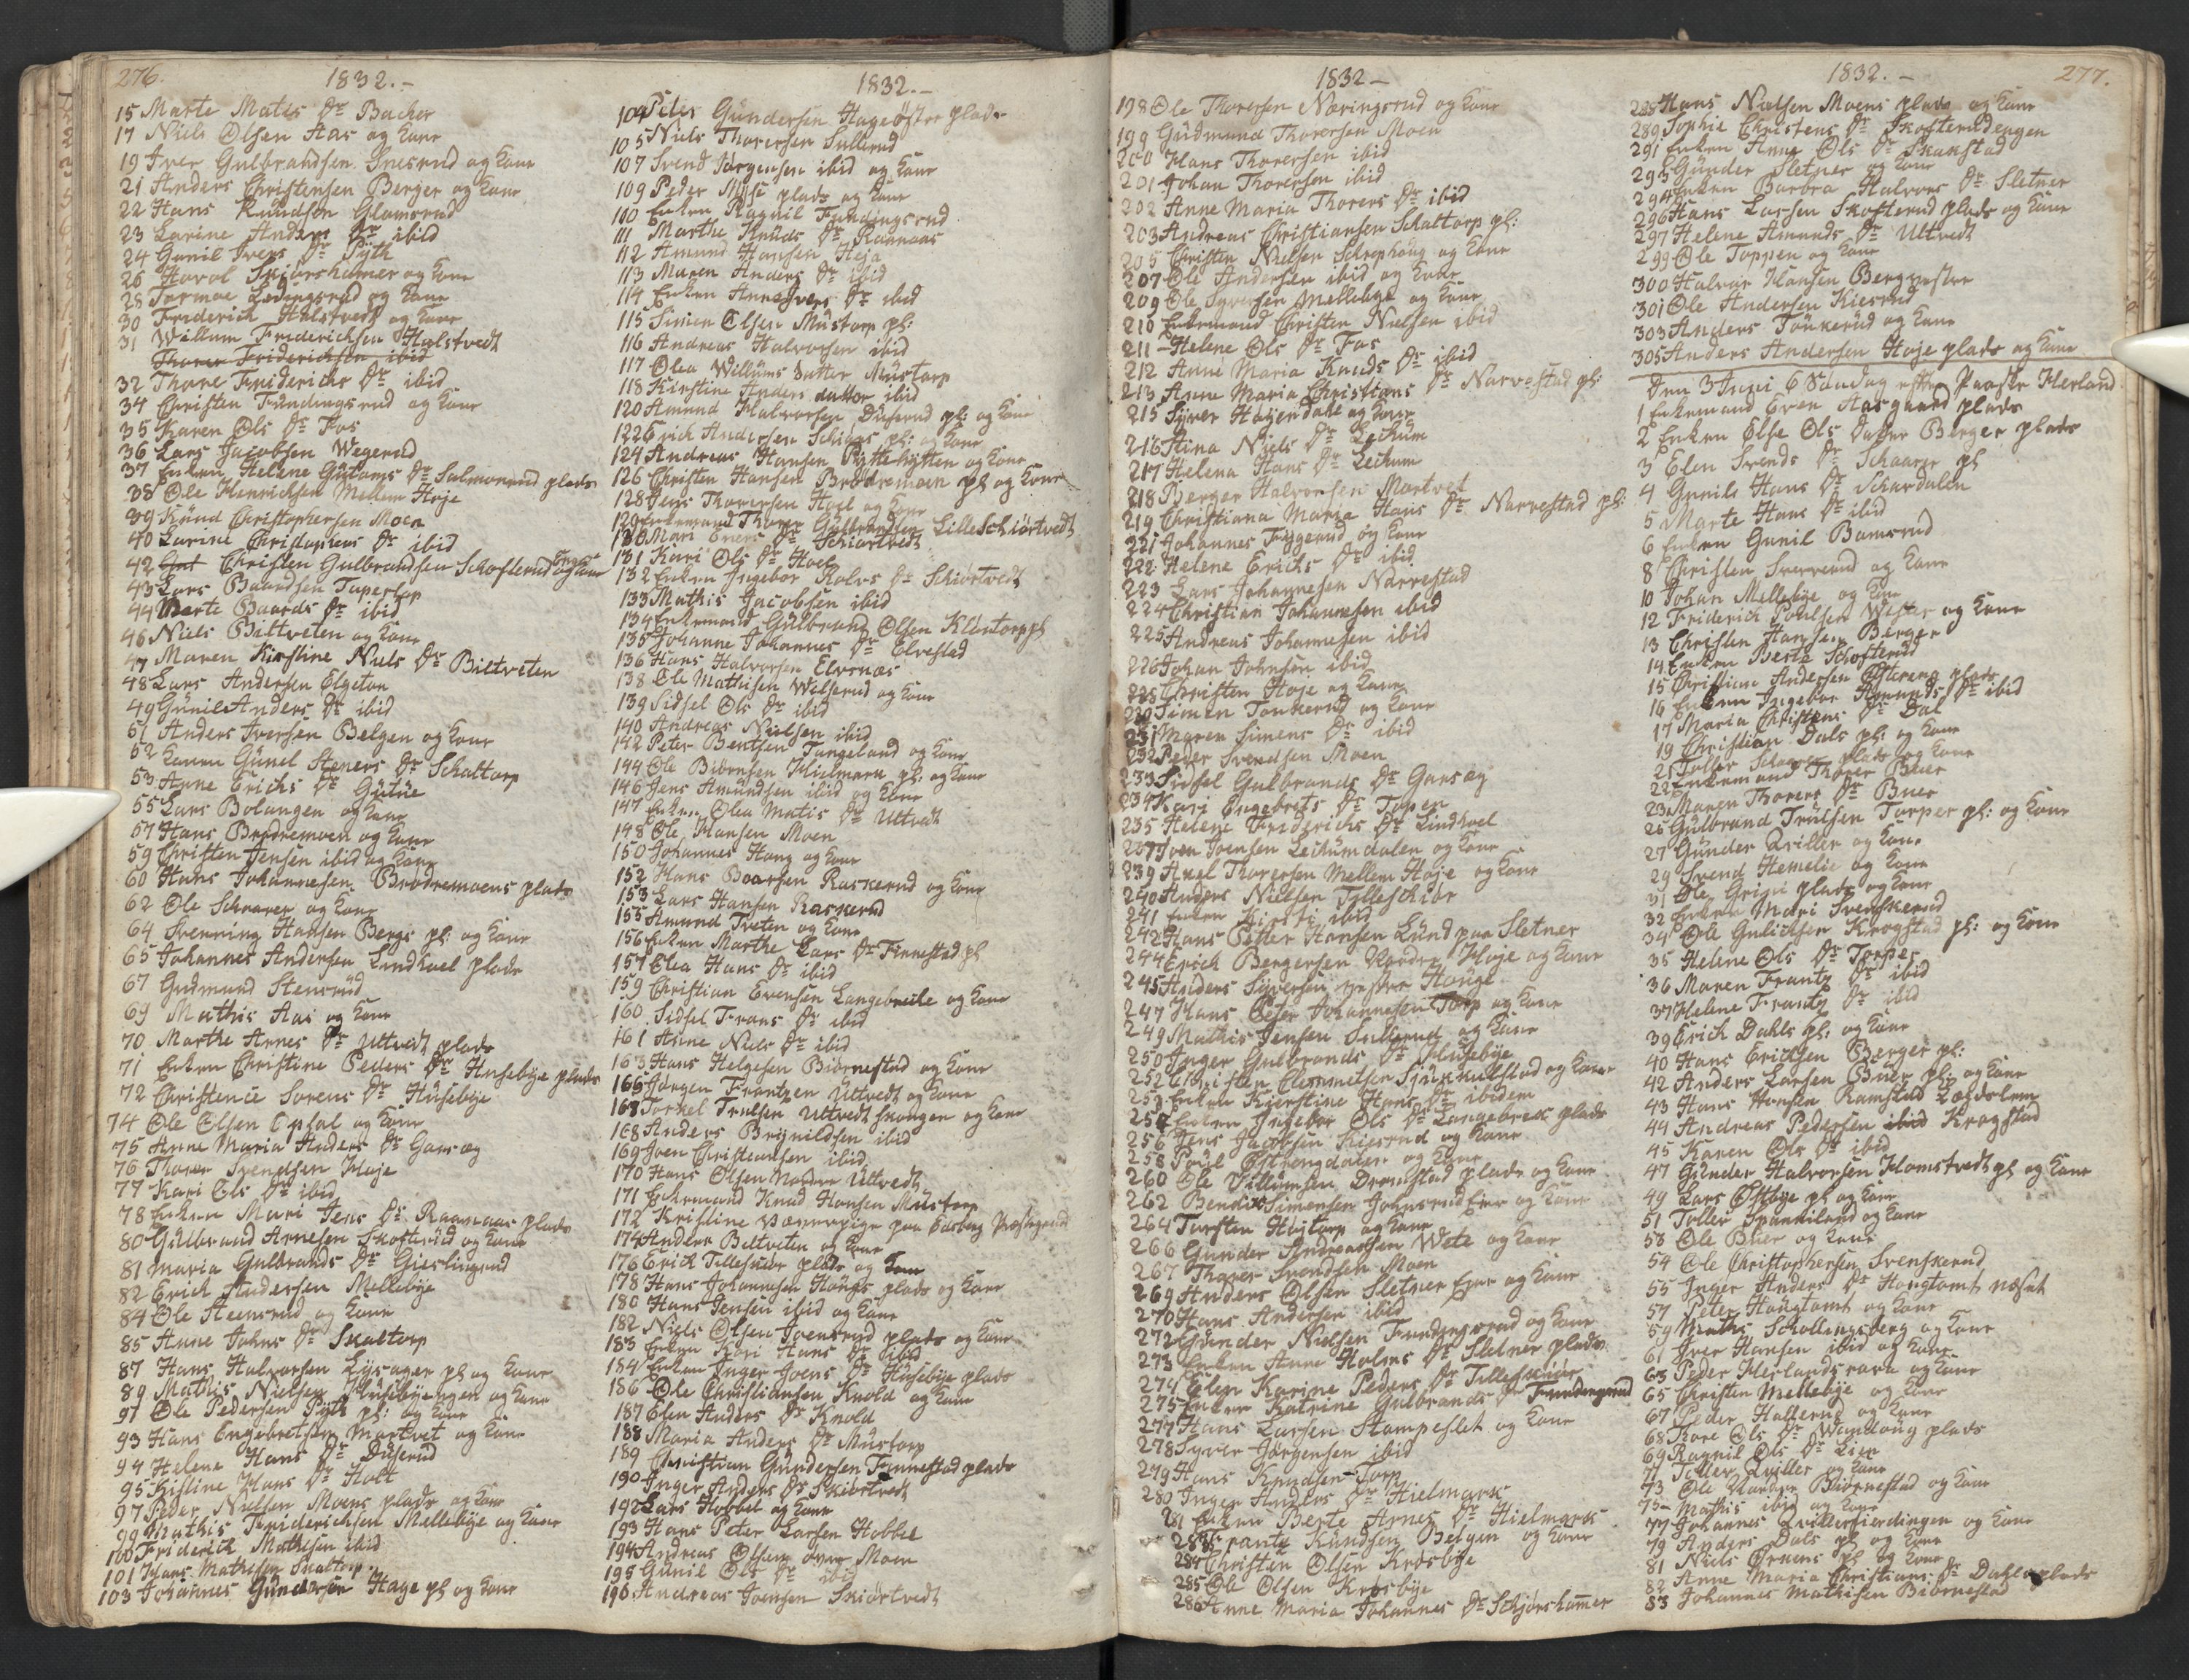 276.
1832.-
15 Marte Matis Dr Bacher
17 Niels Olsen Aas og Kone
19 Iver Gulbrandsen Snesrud og Kone
21 Anders Christensen Berger og Kone
22 Hans Knudsen Glomsrud
23 Larine Anders Dr ibid
24 Gunil Ivers Dr Pyth
26 Harol Skiørshamer og Kone
28 Tormoe Ledingsrud og Kone
30 Friderich Halstvedt og Kone
31 Willum Friderichsen Halstvedt
Thorer Friderichsen ibid
32 Thore Friderichs Dr ibid
34 Christen Fundingsrud og Kone
35 Karen Ols Dr Fos
36 Lars Jacobsen Wegerud
37 Enken Helene Guttorms Dr Salmonrud plads
38 Ole Henrichsen Mellem Høje
39 Knud Christophersen Moen
40 Larine Christophers Dr ibid
42 Christen Gulbrandsen Schofterud Eng og Kone
43 Lars Baardsen Taperop
44 Marte Baards Dr ibid
46 Niels Biltveten og Kone
47 Maren Kirstine Niels Dr Biltveten
48 Lars Andersen Elgeton
49 Gunil Anders Dr ibid
51 Anders Iversen Belgen og Kone
52 Karen Gunel Steners Dr Schaltorp
53 Anne Erichs Dr Gutue
55 Lars Bolangen og Kone
57 Hans Brødremoen og Kone
59 Christen Jensen ibid og Kone
60 Hans Johannesen Brødremoens plads
62 Ole Schaarer og Kone
64 Svenning Hansen Bergs pl: og Kone
65 Johannes Andersen Lindhoel plads
67 Gudmund Stensrud
69 Mathis Aas og Kone
70 Marthe Arnes Dr Ultvedt plads
71 Enken Christine Peders Dr Husebye plads
72 Christence Sorens Dr Husebye
74 Ole Olsen Opsal og Kone
75 Anne Maria Anders Dr Gaasøg
76 Thorer Svendsen Høje
77 Kari Ols Dr ibid
78 Enken Mari Jens Dr Raanaas plads
80 Gulbrand Arnesen Skofterud og Kone
81 Maria Gulbrands Dr Gieslingrud
82 Erich Andersen Mellebye
84 Ole Steensrud og Kone
85 Anne Johns Dr Skaltorp
87 Hans Halvorsen Lysager pl og Kone
89 Mathis Nielsen Husebyengen og Kone
91 Ole Pedersen Pyth pl: og Kone
93 Hans Engebretsen Martvet og Kone
94 Helene Hans Dr Duserud
95 Kistine Hans Dr Holt
97 Peder Nielsen Moens plads og Kone
99 Mathis Friderichsen Mellebye og Kone
100 Friderich Mathisen ibid
101 Hans Mathisen Skaltorp
103 Johannes Gundersen Hage pl og Kone
1832.-
104 Peter Gundersen Hageøstre plads
105 Niels Thorersen Sullerud
107 Svend Jørgensen ibid og Kone
109 Peder Mysi plads og Kone
110 Enken Ragnil Fundingsrud
111 Marthe Knuds Dr Raanaas
112 Amund Hansen Heja
113 Maren Anders Dr ibid
114 Enken Anne Ivers Dr ibid
115 Simen Olsen Mustorp pl:
116 Andreas Halvorsen ibid
117 Olea Willums datter Mustorp
118 Kirstine Anders datter ibid
120 Amund Halvorsen Duserud pl: og Kone
122 Erich Andersen Schiøns pl: og Kone
124 Andreas Hansen Pyttehytten og Kone
126 Christen Hansen Brødremoen pl og Kone
128 Jens Thorersen Hoel og Kone
129 Enkemand Thorer Gulbrandsen Lilleschiørtvedt
130 Mari Eners Dr Schiørtvedt
131 Kari Ols Dr Hoel
132 Enken Ingebor Rolvs Dr Schiørtvedt
133 Mathis Jacobsen ibid
134 Enkemand Gulbrand Olsen Klontorp pl
135 Johanne Johannes Dr Elvestad
136 Hans Halvorsen Elvenæs
138 Ole Mathisen Wilserud og Kone
139 Sidsel Ols Dr ibid
140 Andreas Nielsen ibid
142 Peter Bentsen Tangeland og Kone
144 Ole Biørnsen Hielmark pl: og Kone
146 Jens Amundsen ibid og Kone
147 Enken Olea Matis Dr Ultvedt
148 Ole Hansen Moen
150 Johannes Houg og Kone
152 Hans Boarsen Raskerud og Kone
153 Lars Hansen Raskerud
155 Amund Tveten og Kone
156 Enken Marthe Lars Dr Finnestad pl
157 Olea Hans Dr ibid
159 Christian Evensen Langebreile og Kone
160 Sidsel Frans Dr ibid
161 Anne Niels Dr ibid
163 Hans Helgesen Biørnestad og Kone
165 Jørgen Frantzen Ultvedt og Kone
167 Torkel Truelsen Ultvedt skougen og Kone
168 Anders Brynildsen ibid
169 Joen Christiansen ibid
170 Hans Olsen Nordre Ultvedt
171 Enkemand Knud Hansen Mustorp
172 Kristine
174 Anders Biltveten og Kone
176 Erich Tilleskiør plads og Kone
178 Hans Johannesen Hougs plads og Kone
180 Hans Jensen ibid og Kone
182 Niels Olsen Joensrud plads og Kone
183 Enken Kari Hans Dr ibid
184 Enken Inger Joens Dr Husebye plads
186 Ole Christiansen Knold og Kone
187 Elen Anders Dr Knold
188 Maria Anders Dr Mustorp
189 Christian Gundersen Finnestad plads
190 Inger Anders Dr Skiørtvedt
192 Lars Hobbel og Kone
193 Hans Peter Larsen Hobbel
194 Andreas Olsen øvre Moen
195 Gunil Ols Dr ibid
196 Andreas Joensen Skiørtvedt
1832-
198 Ole Thorersen Næringsrud og Kone
199 Gudmund Thorersen Moen
200 Hans Thorersen ibid
201 Johan Thorersen ibid
202 Anne Maria Thorers Dr ibid
203 Andreas Christiansen Schaltorp pl:
205 Christen Nielsen Schrephoug og Kone
207 Ole Andersen ibid og Kone
209 Ole Syversen Mellebye og Kone
210 Enkemand Christen Nielsen ibid
211 Helene Ols Dr Fos
212 Anne Maria Knuds Dr ibid
213 Anne Maria Christians Dr Narvestad pl:
215 Syver Høyendahl og Kone
216 Stina Niels Dr Lechum
217 Helena Hans Dr Lechum
218 Berger Halvorsen Martvet
219 Christiana Maria Hans Dr Narvestad pl:
221 Johannes Tryggerud og Kone
222 Helene Erichs Dr ibid
223 Lars Johannesen Narvestad
224 Christian Johannesen ibid
225 Andreas Johannesen ibid
226 Johan Johnsen ibid
228 Christen Høje og Kone
230 Simen Tonkerud og Kone
231 Maren Simens Dr ibid
232 Peder Svendsen Moen
233 Sidsel Gulbrands Dr Gaasøg
234 Kari Engebrets Dr Topen
235 Helene Friderichs Dr Lindhoel
237 Joen Joensen Lechumdalen og Kone
239 Axel Thorersen Mellem Høje og Kone
240 Anders Nielsen Tylleschiør
241 Enken Kirsti ibid
242 Hans Peter Hansen Lund paa Sletner
244 Erich Bergersen Nordre Høje og Kone
245 Anders Syversen vestre Houge
247 Hans Peter Johannesen Torp og Kone
249 Mathis Jensen Sullerud og Kone
250 Inger Gulbrands Dr Husebye
252 Christen Clemmetsen Sjukkulstad og Kone
253 Enken Kierstine Hans Dr ibidem
254 Enken Ingebor Ols Dr Langebrek plads
256 Jens Jacobsen Kiesrud og Kone
258 Poul Østrengdalen og Kone
260 Ole Villumsen Dramstad plads og Kone
262 Bendix Simensen Johnsrud Eier og Kone
264 Torsten Høytorp og Kone
266 Gunder Andreassen Wete og Kone
267 Thorer Svendsen Moen
269 Anders Olsen Sletner Eier og Kone
270 Hans Andersen ibid
272 Gunder Nielsen Fundingsrud og Kone
273 Enken Anne Holms Dr Sletner plads
274 Elen Karine Peders Dr Tilleskiør
275 Enken Katrine Gulbrands Dr Fundingsrud
277 Hans Larsen Stampeslet og Kone
278 Syver Jørgensen ibid
279 Hans Knudsen Torp
280 Inger Anders Dr Hielmark
281 Enken Berte Arnes Dr Hielmark
283 Frantz Knudsen Belgen og Kone
284 Christen Olsen Krosbye
285 Ole Olsen Krosbye
286 Anne Maria Johannes Dr Schjørshammer
1832.-
277.
288 Hans Nielsen Moens plads og Kone
289 Sophie Christens Dr Skofterudengen
291 Enken Anne Ols Dr Skakstad
293 Gunder Sletner og Kone
294 Enken Barbra Halvors Dr Sletner
296 Hans Larsen Skofterud plads og Kone
297 Helene Amunds Dr Ultvedt
299 Ole Toppen og Kone
300 Halvor Hansen Berg
301 Ole Andersen Kiesrud
303 Anders Tonkerud og Kone
305 Anders Andersen Høje plads og Kone
Den 3 Juni 6 Søndag efter Paaske Herland
1 Enkemand Even Aasgaard plads
2 Enken Else Ols Datter Berger plads
3 Elen Svends Dr Schaarer pl
4 Gunild Hans Dr Schardalen
5 Marte Hans Dr ibid
6 Enken Gunil Bamsrud
8 Christen Sververud og Kone
10 Johan Mellebye og Kone
12 Friderich Poulsen Wester og Kone
13 Christen Hansen Berger
14 Enken Berte Schofterud
15 Christian Andersen Østereng plads
16 Enken Ingebor Amunds Dr ibid
17 Maria Christens Dr Dal
19 Christian Dals pl: og Kone
21 Toller Schaarer plads og Kone
22 Enkemand Thorer Buer
23 Maren Thorers Dr Buer
25 Gulbrand Trulsen Torper pl: og Kone
27 Gunder Qviller og Kone
29 Svend Hemelie og Kone
31 Ole Grini plads og Kone
32 Enken Mari Svenskerud
34 Ole Gulichsen Krogstad pl: og Kone
35 Helene Ols Dr Torper
36 Maren Frantz Dr ibid
37 Helene Frantz Dr ibid
39 Erich Dahls pl: og Kone
40 Hans Erichsen Berger pl:
42 Anders Larsen Buer pl: og Kone
43 Hans Hansen Ramstad
44 Andreas Pedersen ibid Krogstad
45 Karen Ols Dr ibid
47 Gunder Halvorsen Homstvedt pl og Kone
49 Lars Østbye pl og Kone
51 Toller Spanniland og Kone
53 Ole Buer og Kone
54 Ole Christophersen Svenskerud
55 Inger Anders Dr Hougtomt
57 Peter Hougtomt og Kone
59 Mathis Schollingsberg og Kone
61 Iver Hansen ibid og Kone
63 Peder Herlands og Kone
65 Christen Mellebye og Kone
67 Peder Hallerud og Kone
68 Thore Ols Dr plads
69 Ragnil Ols Dr Lien
71 Toller Qviller og Kone
73 Ole Nordre Biørnestad og Kone
75 Mathis ibid og Kone
77 Johannes Qvillerfierdingen og Kone
79 Anders Dals pl og Kone
81 Niels Ørkens pl og Kone
82 Anne Maria Christians Dr Dahls plads
83 Johannes Mathisen Biørnestad